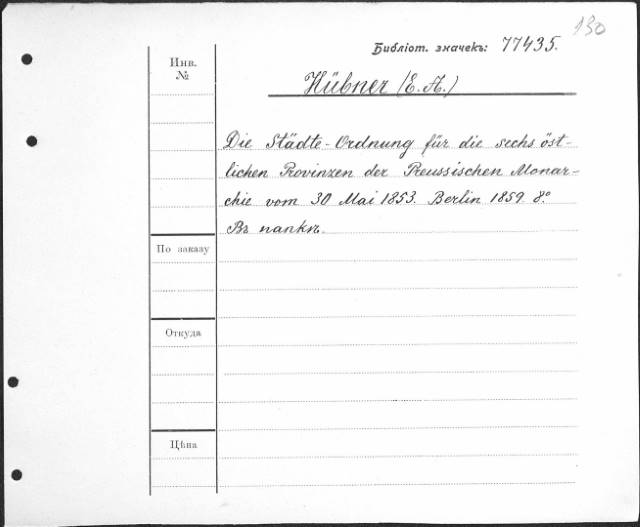 130
Библіот. значекъ: 77435.
Инв.
№
Hübner (E. A.)
Die Städte-Ordnung für die sechs öst-
lichen Provinzen der Preussischen Monar-
chie vom 30 Mai 1853. Berlin 1859. 8º.
Въ папкѣ.
По заказу
Откуда
Цѣна